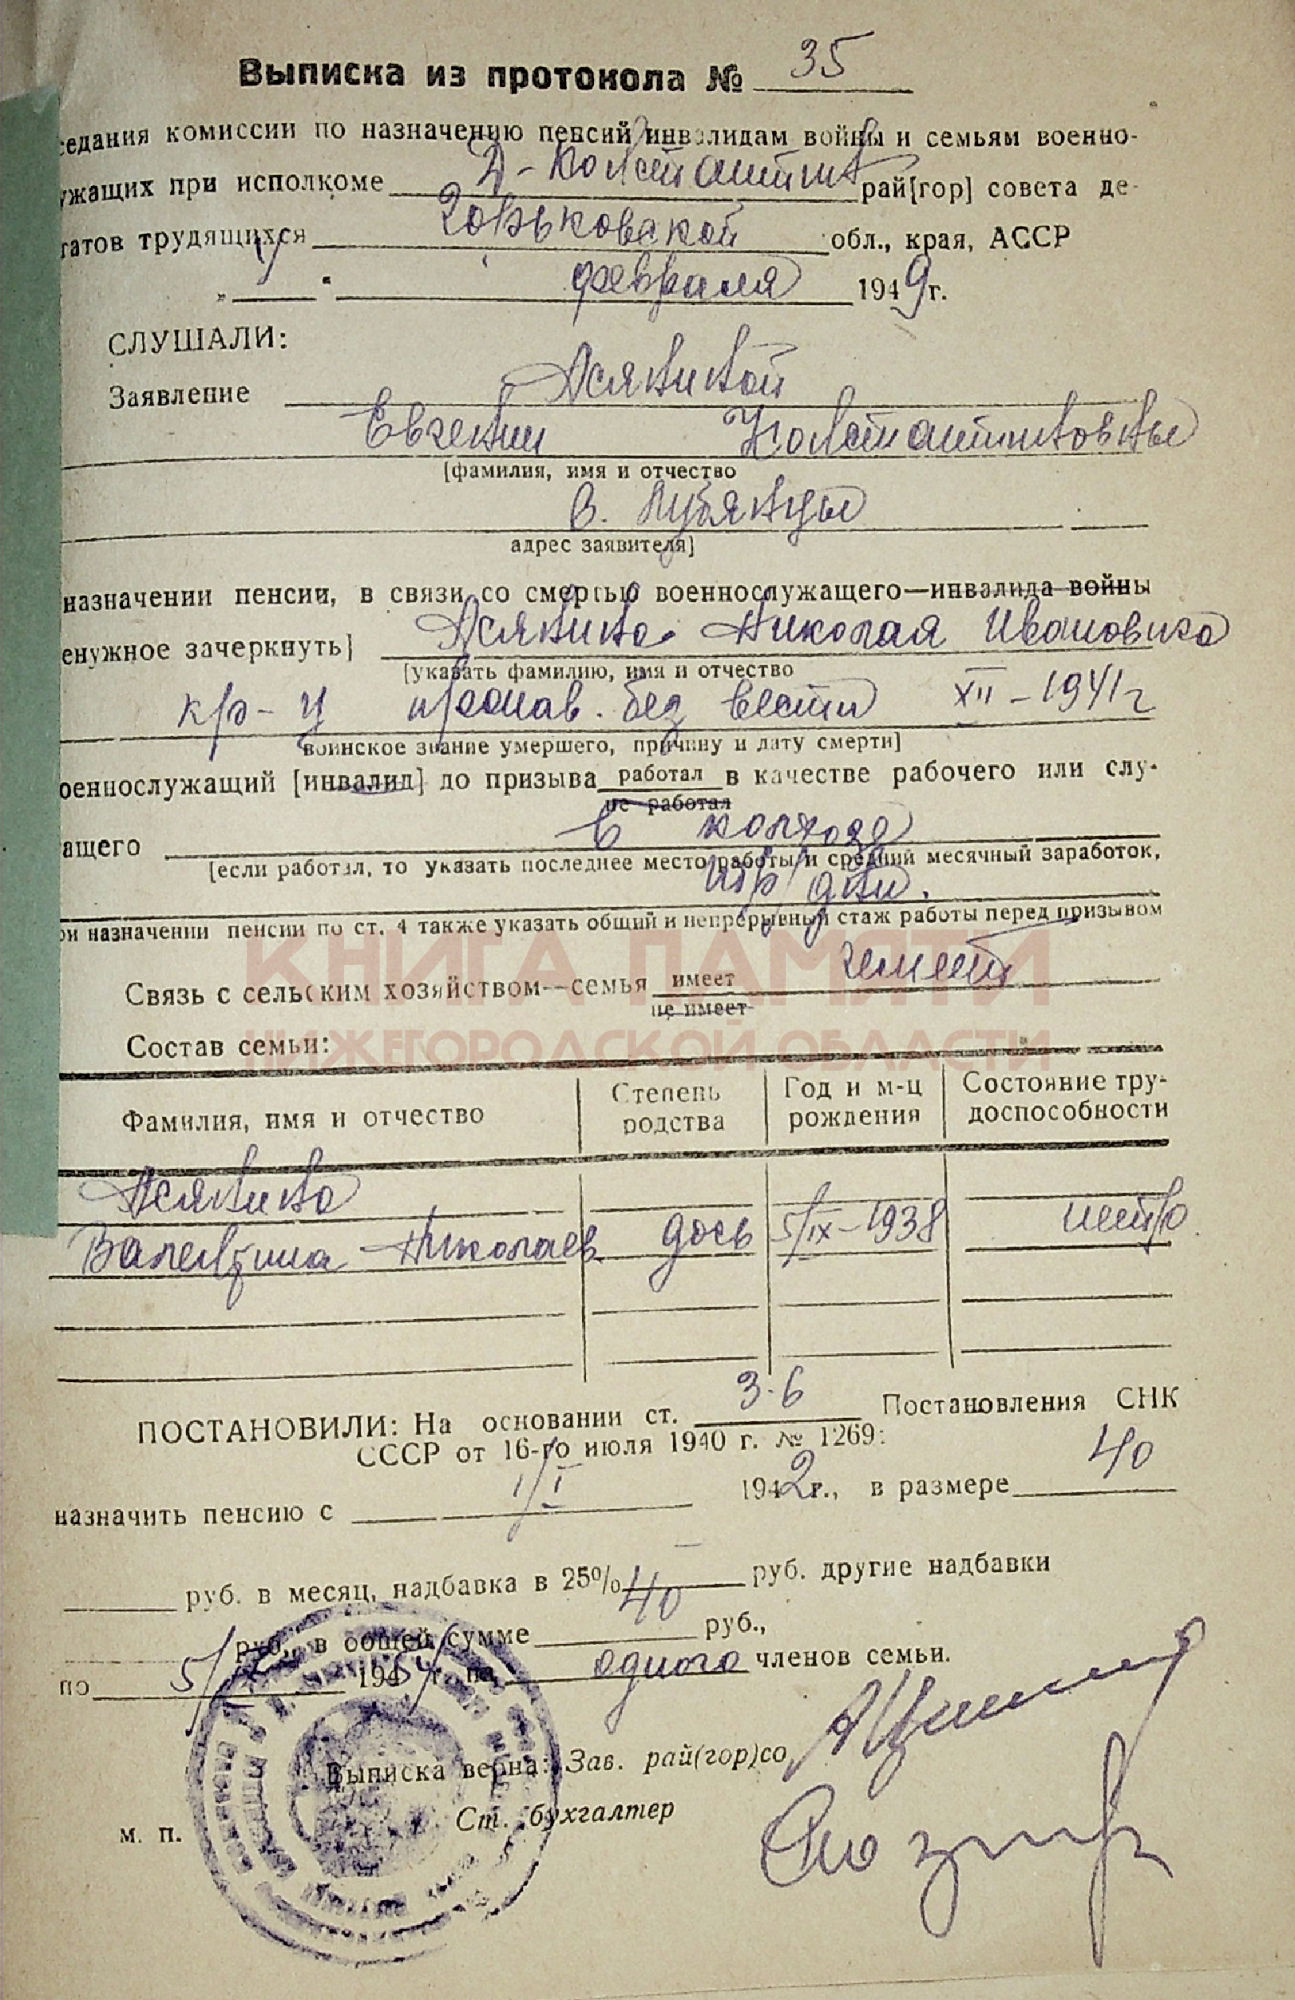 Выписка из протокола № 35
седания комиссии по назначению пенсий инвалидам войны и семьям военно-
ужащих при исполкоме Д-Константин рай[гор] совета де-
татов трудящихся Горьковской обл., края, АССР
„ " февраля 1949 г.
СЛУШАЛИ:
Заявление Асяниной
Евгении Константиновны
[фамилия, имя и отчество
в. Лубянцы
адрес заявителя]
назначении пенсии, в связи со смертью военнослужащего—инвалида войны
енужное зачеркнуть] Асянина Николая Ивановича
[указать фамилию, имя и отчество
кр-ц пропав. без вести XII – 1941 г
воинское звание умершего, причину и дату смерти]
оеннослужащий [инвалид] до призыва работал в качестве рабочего или слу-
не работал
ащего в колхозе
[если работал, то указать последнее место работы и средний месячный заработок,
тр/дни.
ри назначении пенсии по ст. 4 также указать общий и непрерывный стаж работы перед призывом
КНИГА ПАМЯТИ
Связь с сельским хозяйством—семья имеет имеет
не имеет
НИЖЕГОРОДСКОЙ ОБЛАСТИ
Состав семьи:
Фамилия, имя и отчество Степень родства Год и м-ц рождения Состояние тру-доспособности
Асянина
Валентина Николаев дочь 5/IX – 1938 нетр
ПОСТАНОВИЛИ: На основании ст. 3-6 Постановления СНК
СССР от 16-го июля 1940 г. № 1269:
назначить пенсию с 1/I 1942 г., в размере 40
руб. в месяц, надбавка в 25% – руб. другие надбавки
руб., в общей сумме 40 руб.,
по 5/IX 1954 г. на одного членов семьи.
Выписка верна: Зав. рай(гор)со
Ст. бухгалтер
м. п.